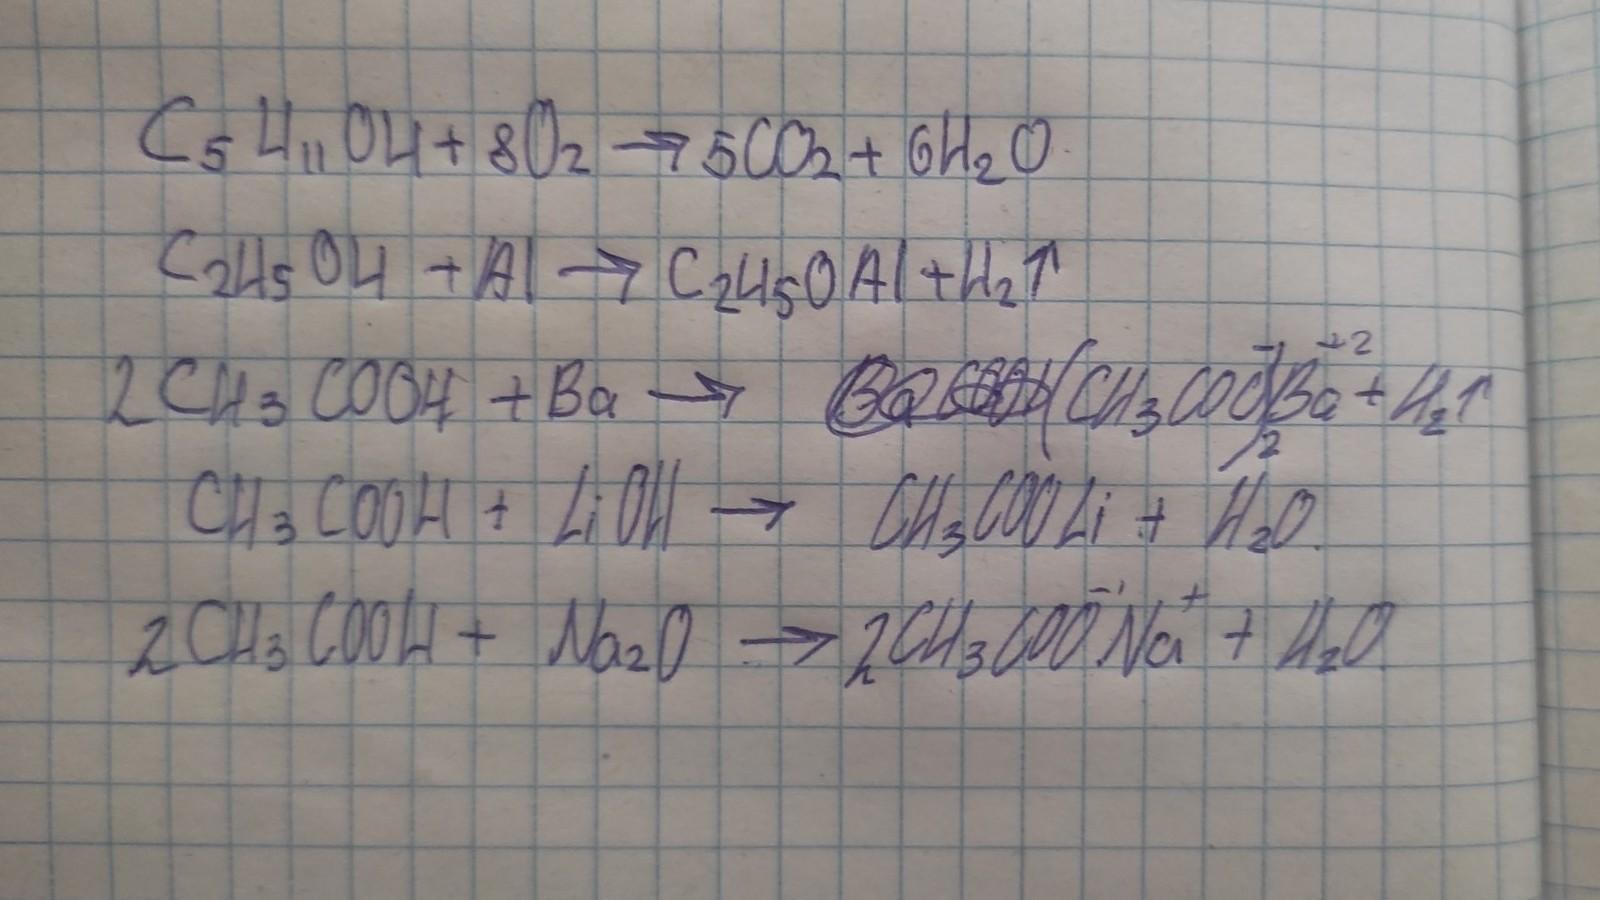 C₅H₁₁OH + 8O₂ → 5CO₂ + 6H₂O
C₂H₅OH + Al → C₂H₅OAl + H₂↑
2CH₃COOH + Ba → (CH₃COO⁻)₂Ba⁺² + H₂↑
CH₃COOH + LiOH → CH₃COOLi + H₂O.
2CH₃COOH + Na₂O → 2CH₃COO⁻Na⁺ + H₂O